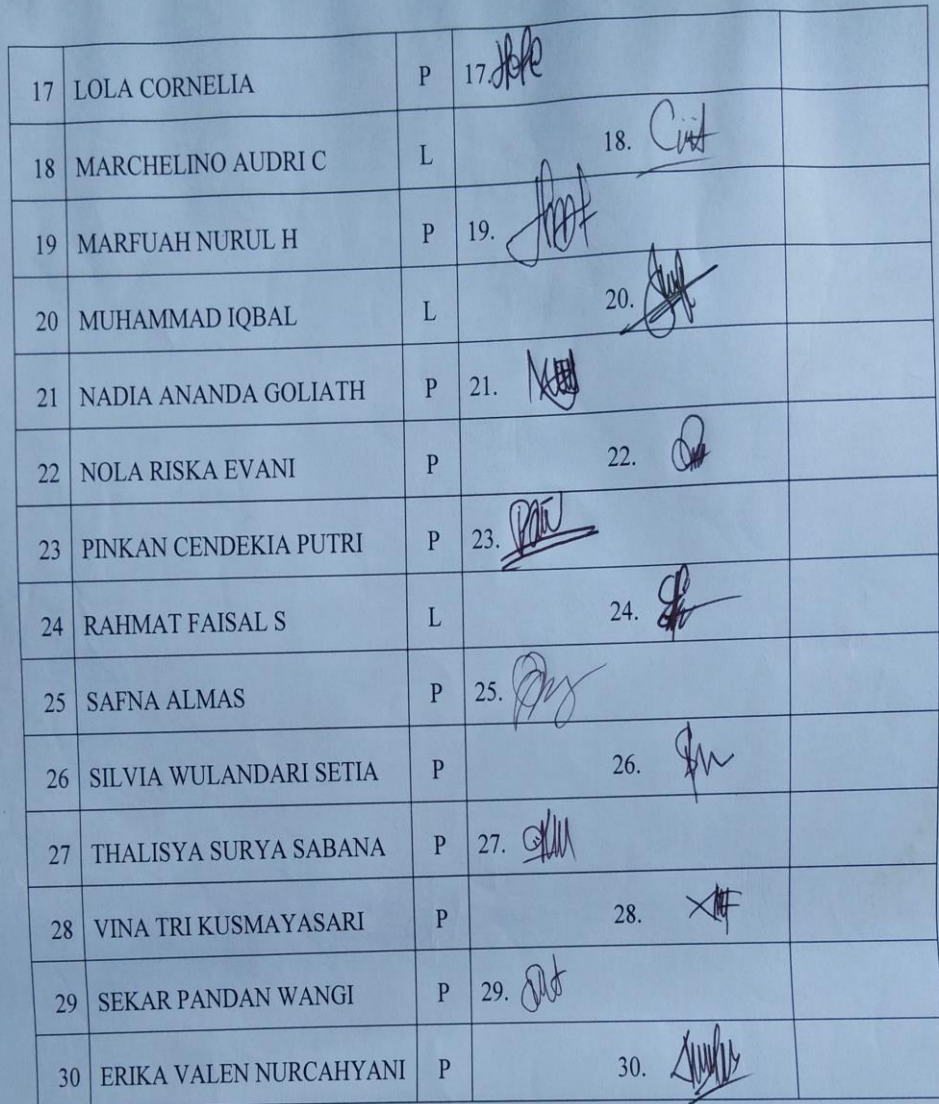 17 LOLA CORNELIA P 17.
18 MARCHELINO AUDRI C L 18.
19 MARFUAH NURUL H P 19.
20 MUHAMMAD IQBAL L 20.
21 NADIA ANANDA GOLIATH P 21.
22 NOLA RISKA EVANI P 22.
23 PINKAN CENDEKIA PUTRI P 23.
24 RAHMAT FAISAL S L 24.
25 SAFNA ALMAS P 25.
26 SILVIA WULANDARI SETIA P 26.
27 THALISYA SURYA SABANA P 27.
28 VINA TRI KUSMAYASARI P 28.
29 SEKAR PANDAN WANGI P 29.
30 ERIKA VALEN NURCAHYANI P 30.